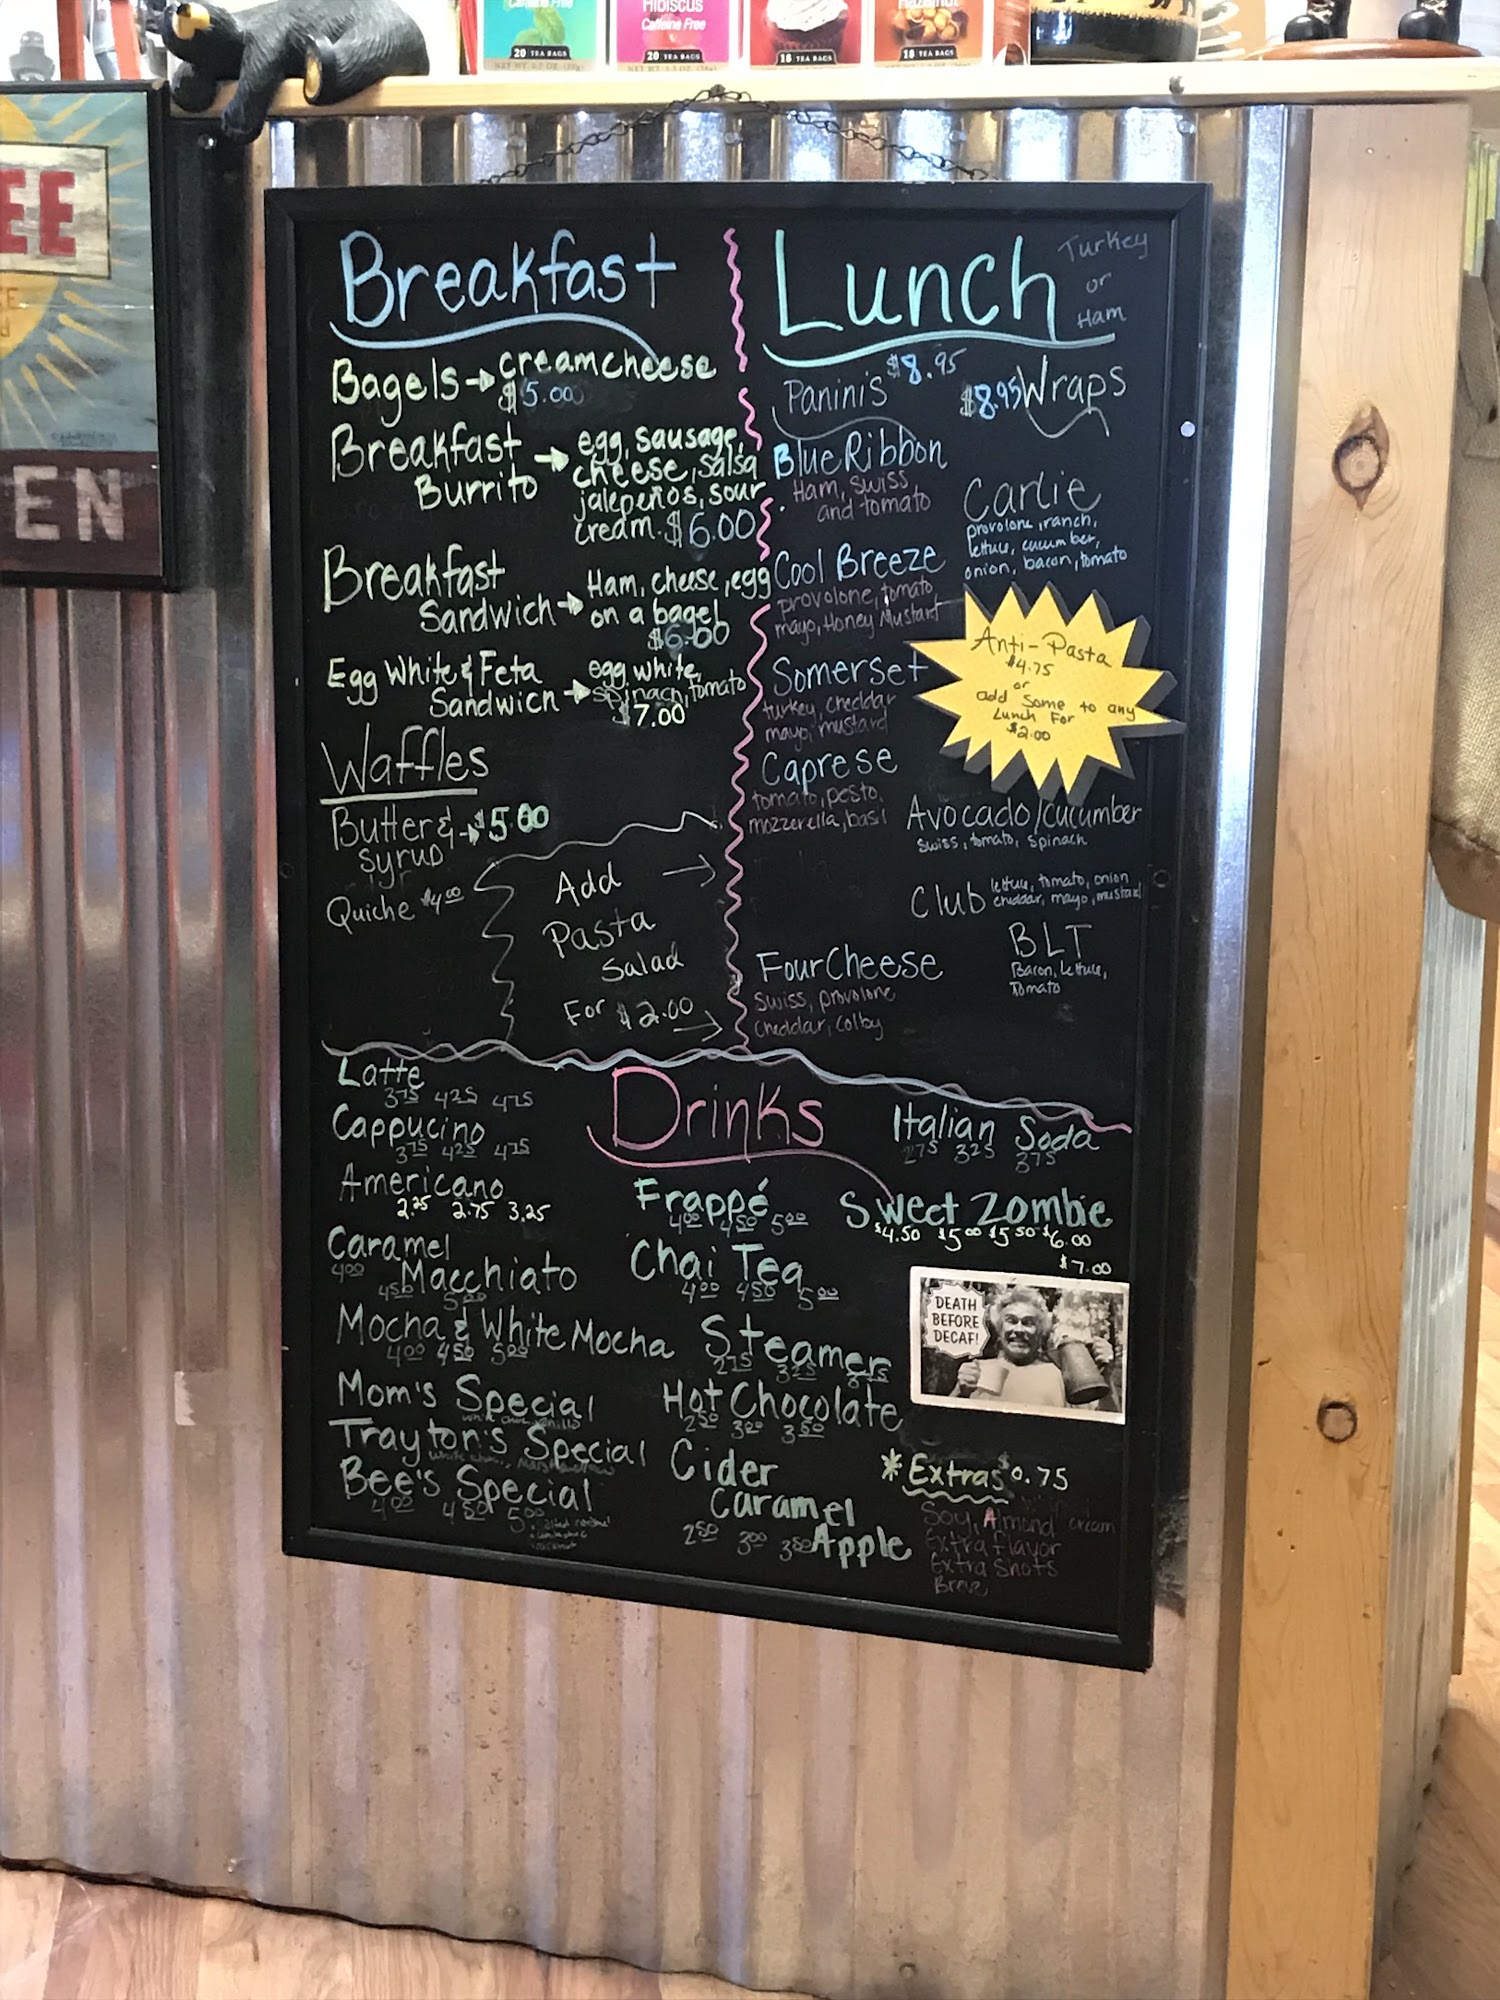 Caffeine Free
20 TEA BAGS
Hibiscus
Caffeine Free
20 TEA BAGS
18 TEA BAGS
Hazelnut
18 TEA BAGS
EE
EN
Breakfast
Bagels → creamcheese
$5.00
Breakfast Burrito → egg, sausage,
cheese, salsa
jalepeños, sour
cream. $6.00
Breakfast Sandwich → Ham, cheese, egg
on a bagel
$6.00
Egg White & Feta
Sandwich → egg white,
spinach, tomato
$7.00
Waffles
Butter & → $5.00
syrup
Quiche $4.00
Add
Pasta
Salad
For $2.00
Lunch
Turkey
or
Ham
Paninis $8.95
Blue Ribbon
Ham, swiss,
and tomato
Cool Breeze
provolone, tomato,
mayo, Honey Mustard
Somerset
turkey, cheddar
mayo, mustard
Caprese
tomato, pesto,
mozzerella, basil
Four Cheese
Swiss, provolone
cheddar, colby
$8.95 Wraps
Carlie
provolone, ranch,
lettuce, cucumber,
onion, bacon, tomato
Anti-Pasta
$4.75
or
add some to any
Lunch For
$2.00
Avocado/cucumber
swiss, tomato, spinach
Club lettuce, tomato, onion
cheddar, mayo, mustard
BLT
Bacon, Lettuce,
Tomato
Drinks
Latte
3.75 4.25 4.75
Cappucino
3.75 4.25 4.75
Americano
2.25 2.75 3.25
Caramel
Macchiato
4.00 4.50 5.00
Mocha & White Mocha
4.00 4.50 5.00
Mom's Special
Trayton's Special
Bee's Special
4.00 4.50 5.00
Frappé
4.00 4.50 5.00
Chai Tea
4.00 4.50 5.00
Steamers
2.75 3.25
Hot Chocolate
2.50 3.00 3.50
Cider
Caramel
Apple
2.50 3.00 3.50
Italian Soda
2.75 3.25 3.75
Sweet Zombie
$4.50 $5.00 $5.50 $6.00
$7.00
DEATH
BEFORE
DECAF!
*Extras $0.75
Soy, Almond cream
Extra flavor
Extra Shots
Breve